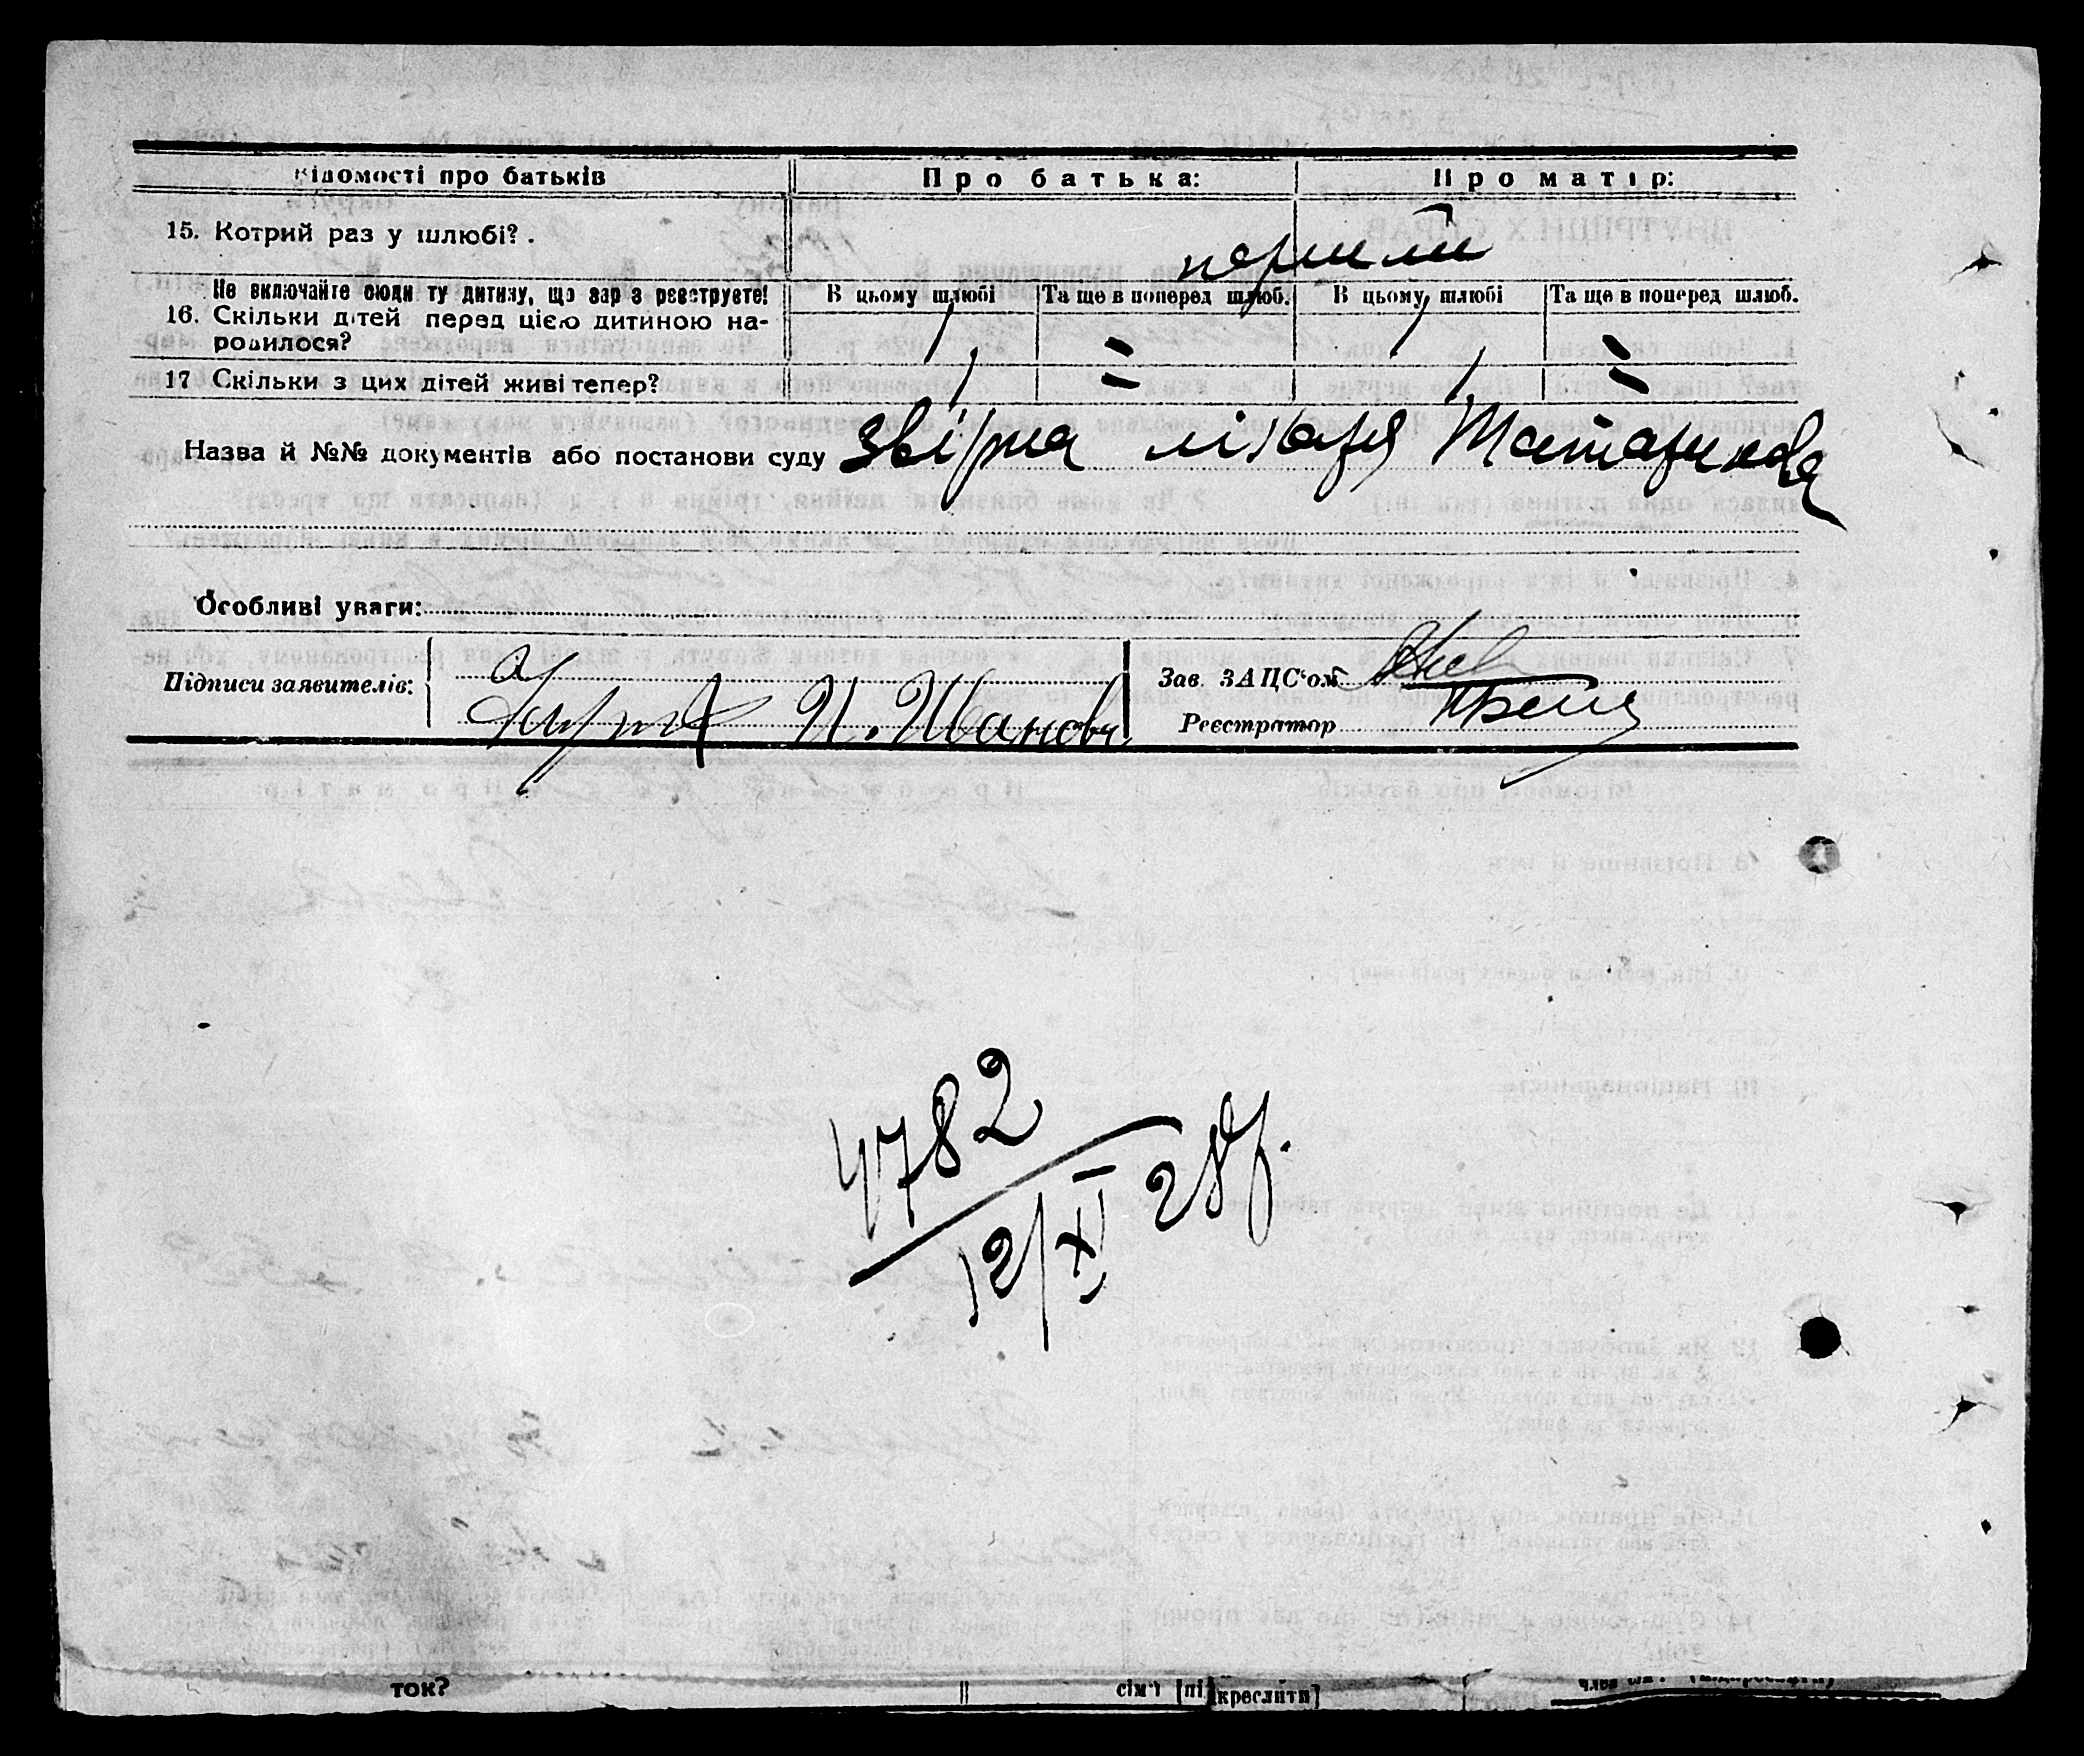 Відомості про батьків Про батька: Про матір:
15. Котрий раз у шлюбі? . перший
Не включайте сюди ту дитину, що зар з реєструєте! В цьому шлюбі Та ще в поперед шлюб. В цьому шлюбі Та ще в поперед шлюб.
16. Скільки дітей перед цією дитиною на-
родилося? 1 = 1 =
17 Скільки з цих дітей живі тепер? 1 = 1 =
Назва й №№ документів або постанови суду звірка лікаря
Особливі уваги:
Підписи заявителів: Зав. ЗАЦС'ом
И. Иванов Реєстратор
4782
12/XI 28 р.
ток? сім'ї [підкреслити]